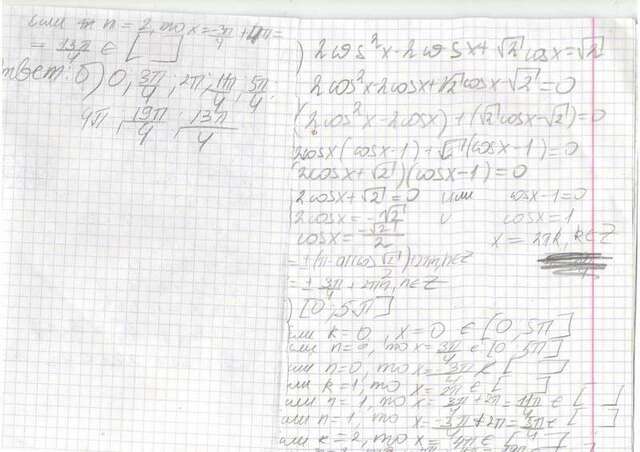 если n = 2, то x = -3π/4 + 4π =
= 13π/4 ∈ [ ]
твет: б) 0, 3π/4; 2π; 11π/4; 5π/4;
4π; 19π/4; 13π/4
) 2cos²x - 2cosx + √2 cosx = √2
2cos²x - 2cosx + √2 cosx - √2 = 0
(2cos²x - 2cosx) + (√2 cosx - √2) = 0
2cosx(cosx - 1) + √2(cosx - 1) = 0
(2cosx + √2)(cosx - 1) = 0
2cosx + √2 = 0 или cosx - 1 = 0
2cosx = -√2 и cosx = 1
cosx = -√2/2 x = 2πk, k∈Z
= ±(π - arccos √2/2) + 2πn, n∈Z
= ± 3π/4 + 2πn, n∈Z
) [0; 5π]
сли k = 0, x = 0 ∈ [0; 5π]
сли n = 0, то x = 3π/4 ∈ [0; 5π]
сли n = 0, то x = -3π/4 ∉ [ ]
сли k = 1, то x = 2π ∈ [ ]
сли n = 1, то x = 3π/4 + 2π = 11π/4 ∈ [ ]
сли n = 1, то x = -3π/4 + 2π = 5π/4 ∈ [ ]
сли k = 2, то x = 4π ∈ [ ]